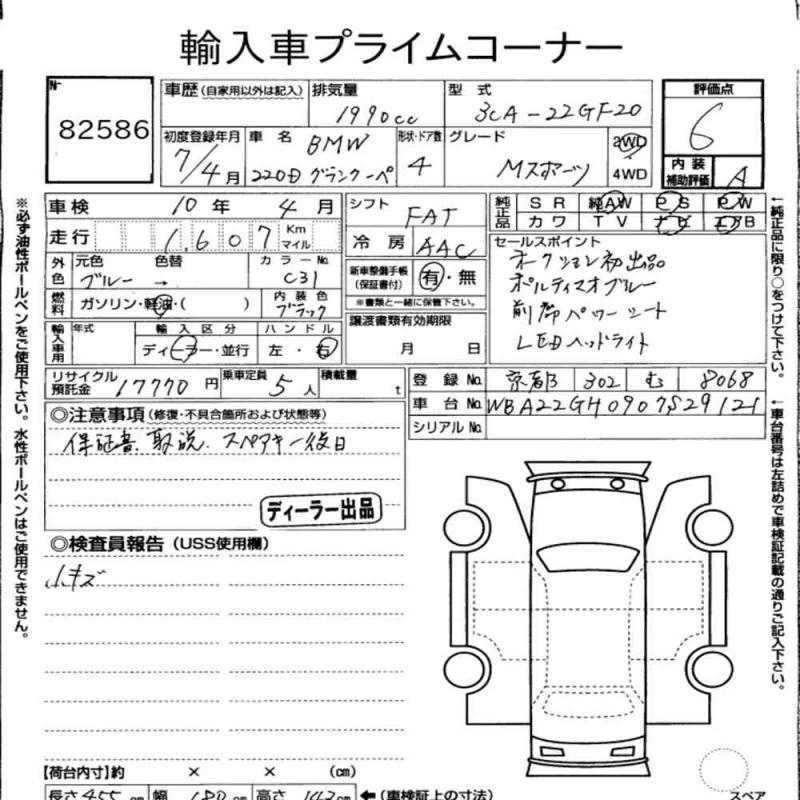 輸入車プライムコーナー
No.
82586
車歴 (自家用以外は記入)
排気量
1990cc
型式
3CA-22GF20
評価点
6
初度登録年月
7/4月
車名
BMW
220d グランクーペ
形状・ドア数
4
グレード
Mスポーツ
2WD
4WD
内装
補助評価
A
車検 10年 4月
走行 1,607 Km マイル
外色
元色
ブルー
色替
→
カラーNo.
C31
燃料
ガソリン・軽油・( )
内装色
ブラック
輸入車用
年式
輸入区分
ディーラー・並行
ハンドル
左・右
シフト
FAT
冷房
AAC
新車整備手帳
(保証書付)
有・無
※書類と一緒に保管下さい。
譲渡書類有効期限
月 日
純正品
SR 純AW PS PW
カワ TV ナビ エアB
セールスポイント
オークション初出品
ポルティマオブルー
前席パワーシート
LEDヘッドライト
リサイクル
預託金
17770円
乗車定員 5人
積載量 t
登録No. 京都 302 む 8068
車台No. WBA22GH0907S29121
シリアルNo.
◎注意事項 (修復・不具合箇所および状態等)
保証書、取説、スペアキー後日
ディーラー出品
◎検査員報告 (USS使用欄)
小キズ
※必ず油性ボールペンをご使用下さい。水性ボールペンはご使用できません。
←純正品に限り○をつけて下さい。
←車台番号は左詰めで車検証記載の通りご記入下さい。
【荷台内寸】約 × × (cm)
長さ 455 cm 幅 180 cm 高さ 143 cm ←(車検証上の寸法)
スペア